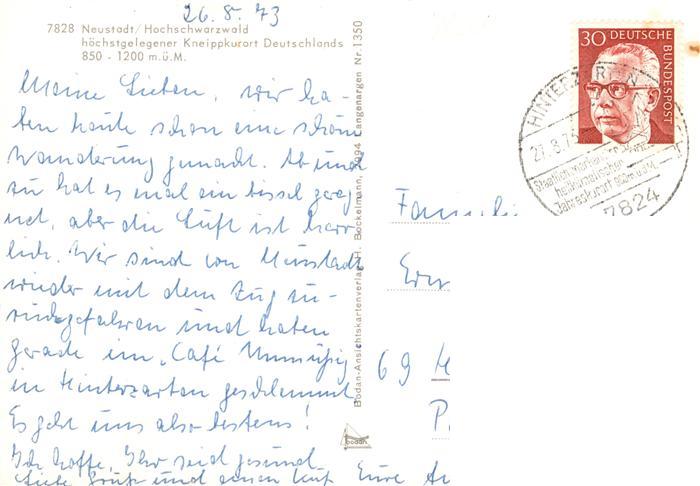 26.8.73
7828 Neustadt/Hochschwarzwald
höchstgelegener Kneippkurort Deutschlands
850 - 1200 m.ü.M.
Meine Lieben, wir ha-
ben heute schon eine schöne
Wanderung gemacht. Ab und
zu hat es mal ein bissel gereg-
net, aber die Luft ist herr-
lich. Wir sind von Neustadt
wieder mit dem Zug zu-
rückgefahren und haben
gerade im „Café Unmüßig
in Hinterzarten geschlemmt
Es geht uns also bestens!
Ich hoffe, Ihr seid gesund
Liebe Grüße und einen Kuß Eure
Bodan-Ansichtskartenverlag H. Bockelmann, 7994 Langenargen Nr. 1350
bodan
30 DEUTSCHE BUNDESPOST
HINTERZARTEN
27.8.73
heilklimatischer
Jahreskurort
7824
Familie
Erw
69 H
P